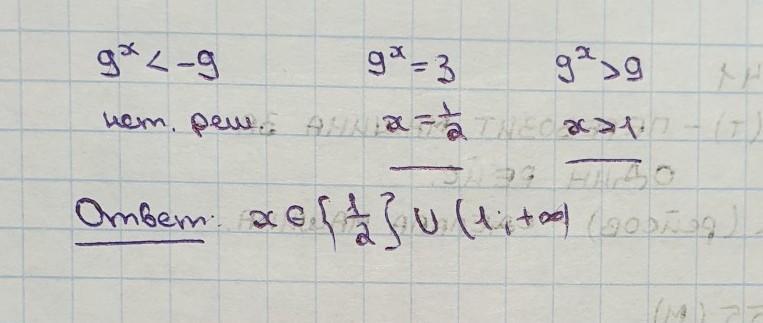 9ˣ < -9 9ˣ = 3 9ˣ > 9
нет. реш. x = 1/2 x > 1.
Ответ: x ∈ {1/2} ∪ (1; +∞)